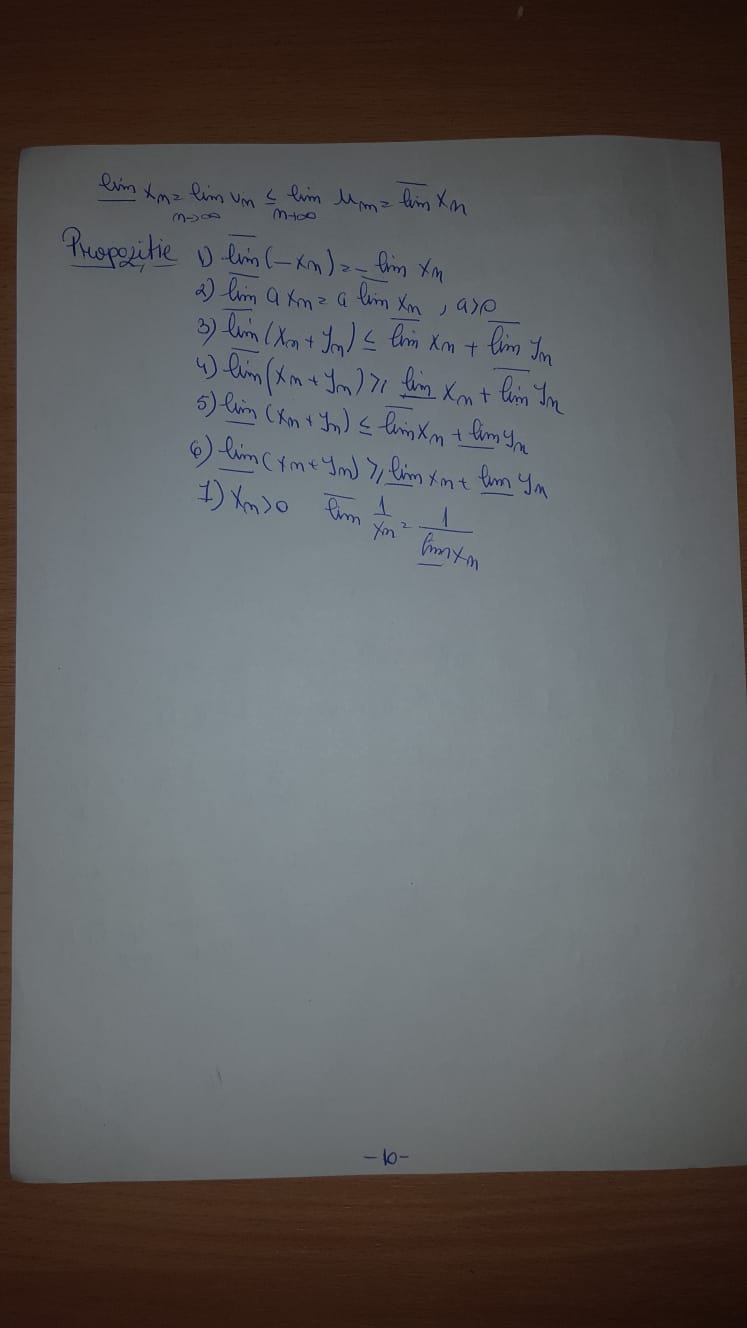 l̲i̲m̲ xₙ = lim vₙ ≤ lim uₙ = l̅i̅m̅ xₙ
n→∞ n→∞
Propoziție 1) l̅i̅m̅ (-xₙ) = - lim xₙ
2) l̅i̅m̅ a xₙ = a l̅i̅m̅ xₙ , a>0
3) l̅i̅m̅ (xₙ + yₙ) ≤ l̅i̅m̅ xₙ + l̅i̅m̅ yₙ
4) l̅i̅m̅ (xₙ + yₙ) ≥ l̲i̲m̲ xₙ + l̅i̅m̅ yₙ
5) l̲i̲m̲ (xₙ + yₙ) ≤ l̅i̅m̅ xₙ + l̲i̲m̲ yₙ
6) l̲i̲m̲ (xₙ + yₙ) ≥ l̲i̲m̲ xₙ + l̲i̲m̲ yₙ
7) xₙ>0 l̅i̅m̅ 1/xₙ = 1/l̲i̲m̲ xₙ
-10-